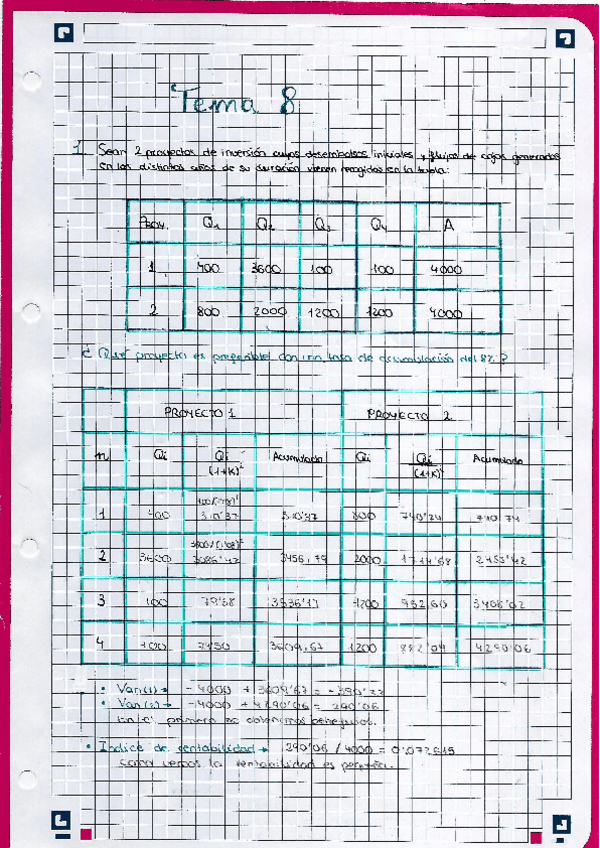 Tema 8
1. Sean 2 proyectos de inversión cuyos desembolsos iniciales y flujos de cajas generados
en los distintos años de su duración vienen recogidos en la tabla:
Proy. Q1 Q2 Q3 Q4 A
1 400 3600 100 100 4000
2 800 2000 1200 1200 4000
¿Qué proyecto es preferible con una tasa de actualización del 8%?
PROYECTO 1 PROYECTO 2
n Qi Qi/(1+K)^i Acumulado Qi Qi/(1+K)^i Acumulado
1 400 370'37 370'37 800 740'74 740'74
2 3600 3086'42 3456,79 2000 1714'68 2455'42
3 100 79'38 3536'17 1200 952,60 3408'02
4 100 73'50 3609,67 1200 882'04 4290'06
• Van(1) → -4000 + 3609'67 = -390'33
• Van(2) → -4000 + 4290'06 = 290'06
En el primero no obtenemos beneficios.
• Índice de rentabilidad → 290'06 / 4000 = 0'072515
como vemos la rentabilidad es pequeña.